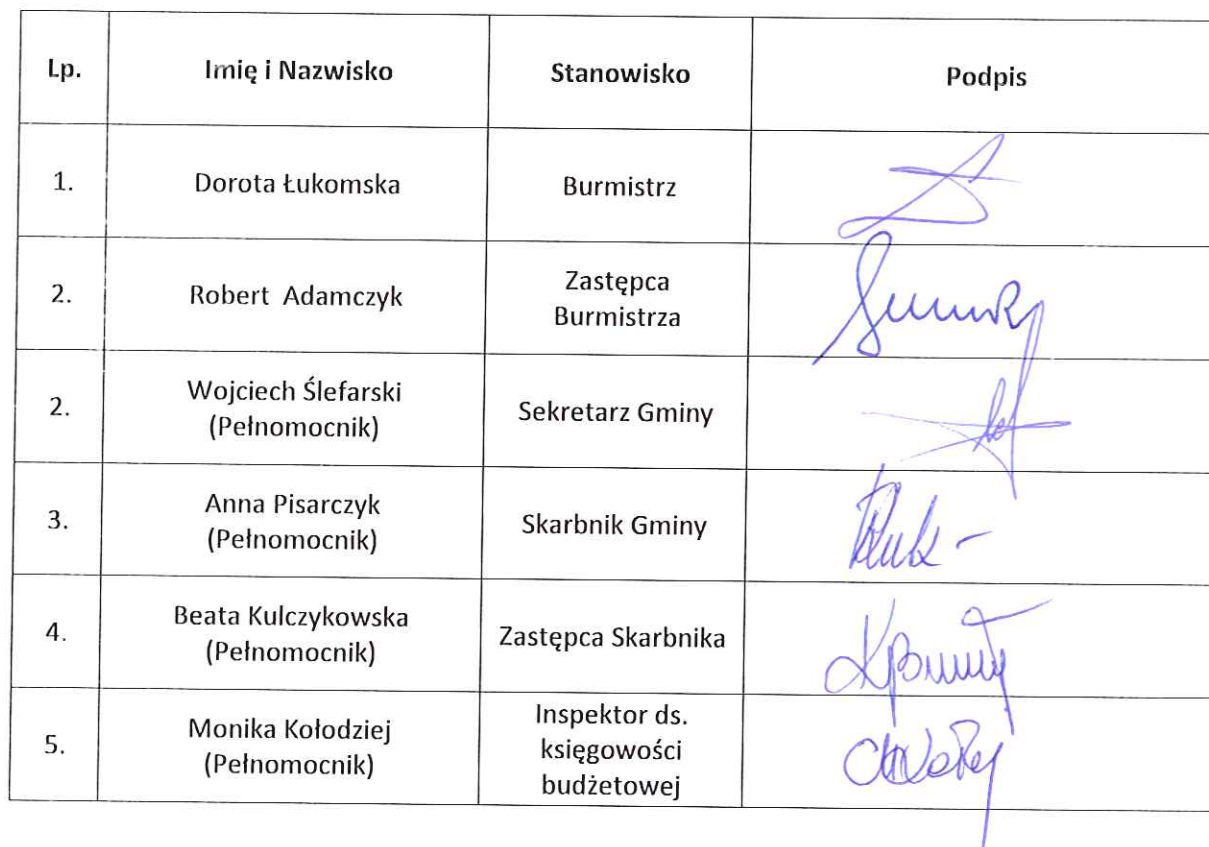 Lp. Imię i Nazwisko Stanowisko Podpis
1. Dorota Łukomska Burmistrz
2. Robert Adamczyk Zastępca
Burmistrza
2. Wojciech Ślefarski
(Pełnomocnik) Sekretarz Gminy
3. Anna Pisarczyk
(Pełnomocnik) Skarbnik Gminy
4. Beata Kulczykowska
(Pełnomocnik) Zastępca Skarbnika
5. Monika Kołodziej
(Pełnomocnik) Inspektor ds.
księgowości
budżetowej